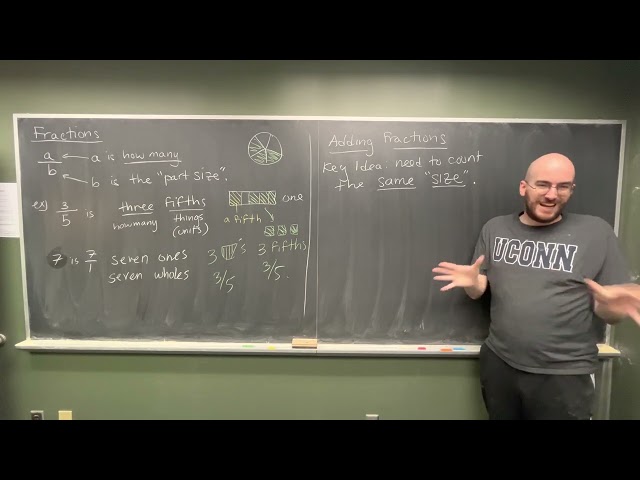 Fractions
a
b
a is how many
b is the "part size".
ex) 3/5 is three fifths
how many things (units)
one
a fifth
7 is 7/1 seven ones
seven wholes
3 's
3 fifths
3/5
3/5.
Adding Fractions
Key Idea: need to count
the same "size".
UCONN